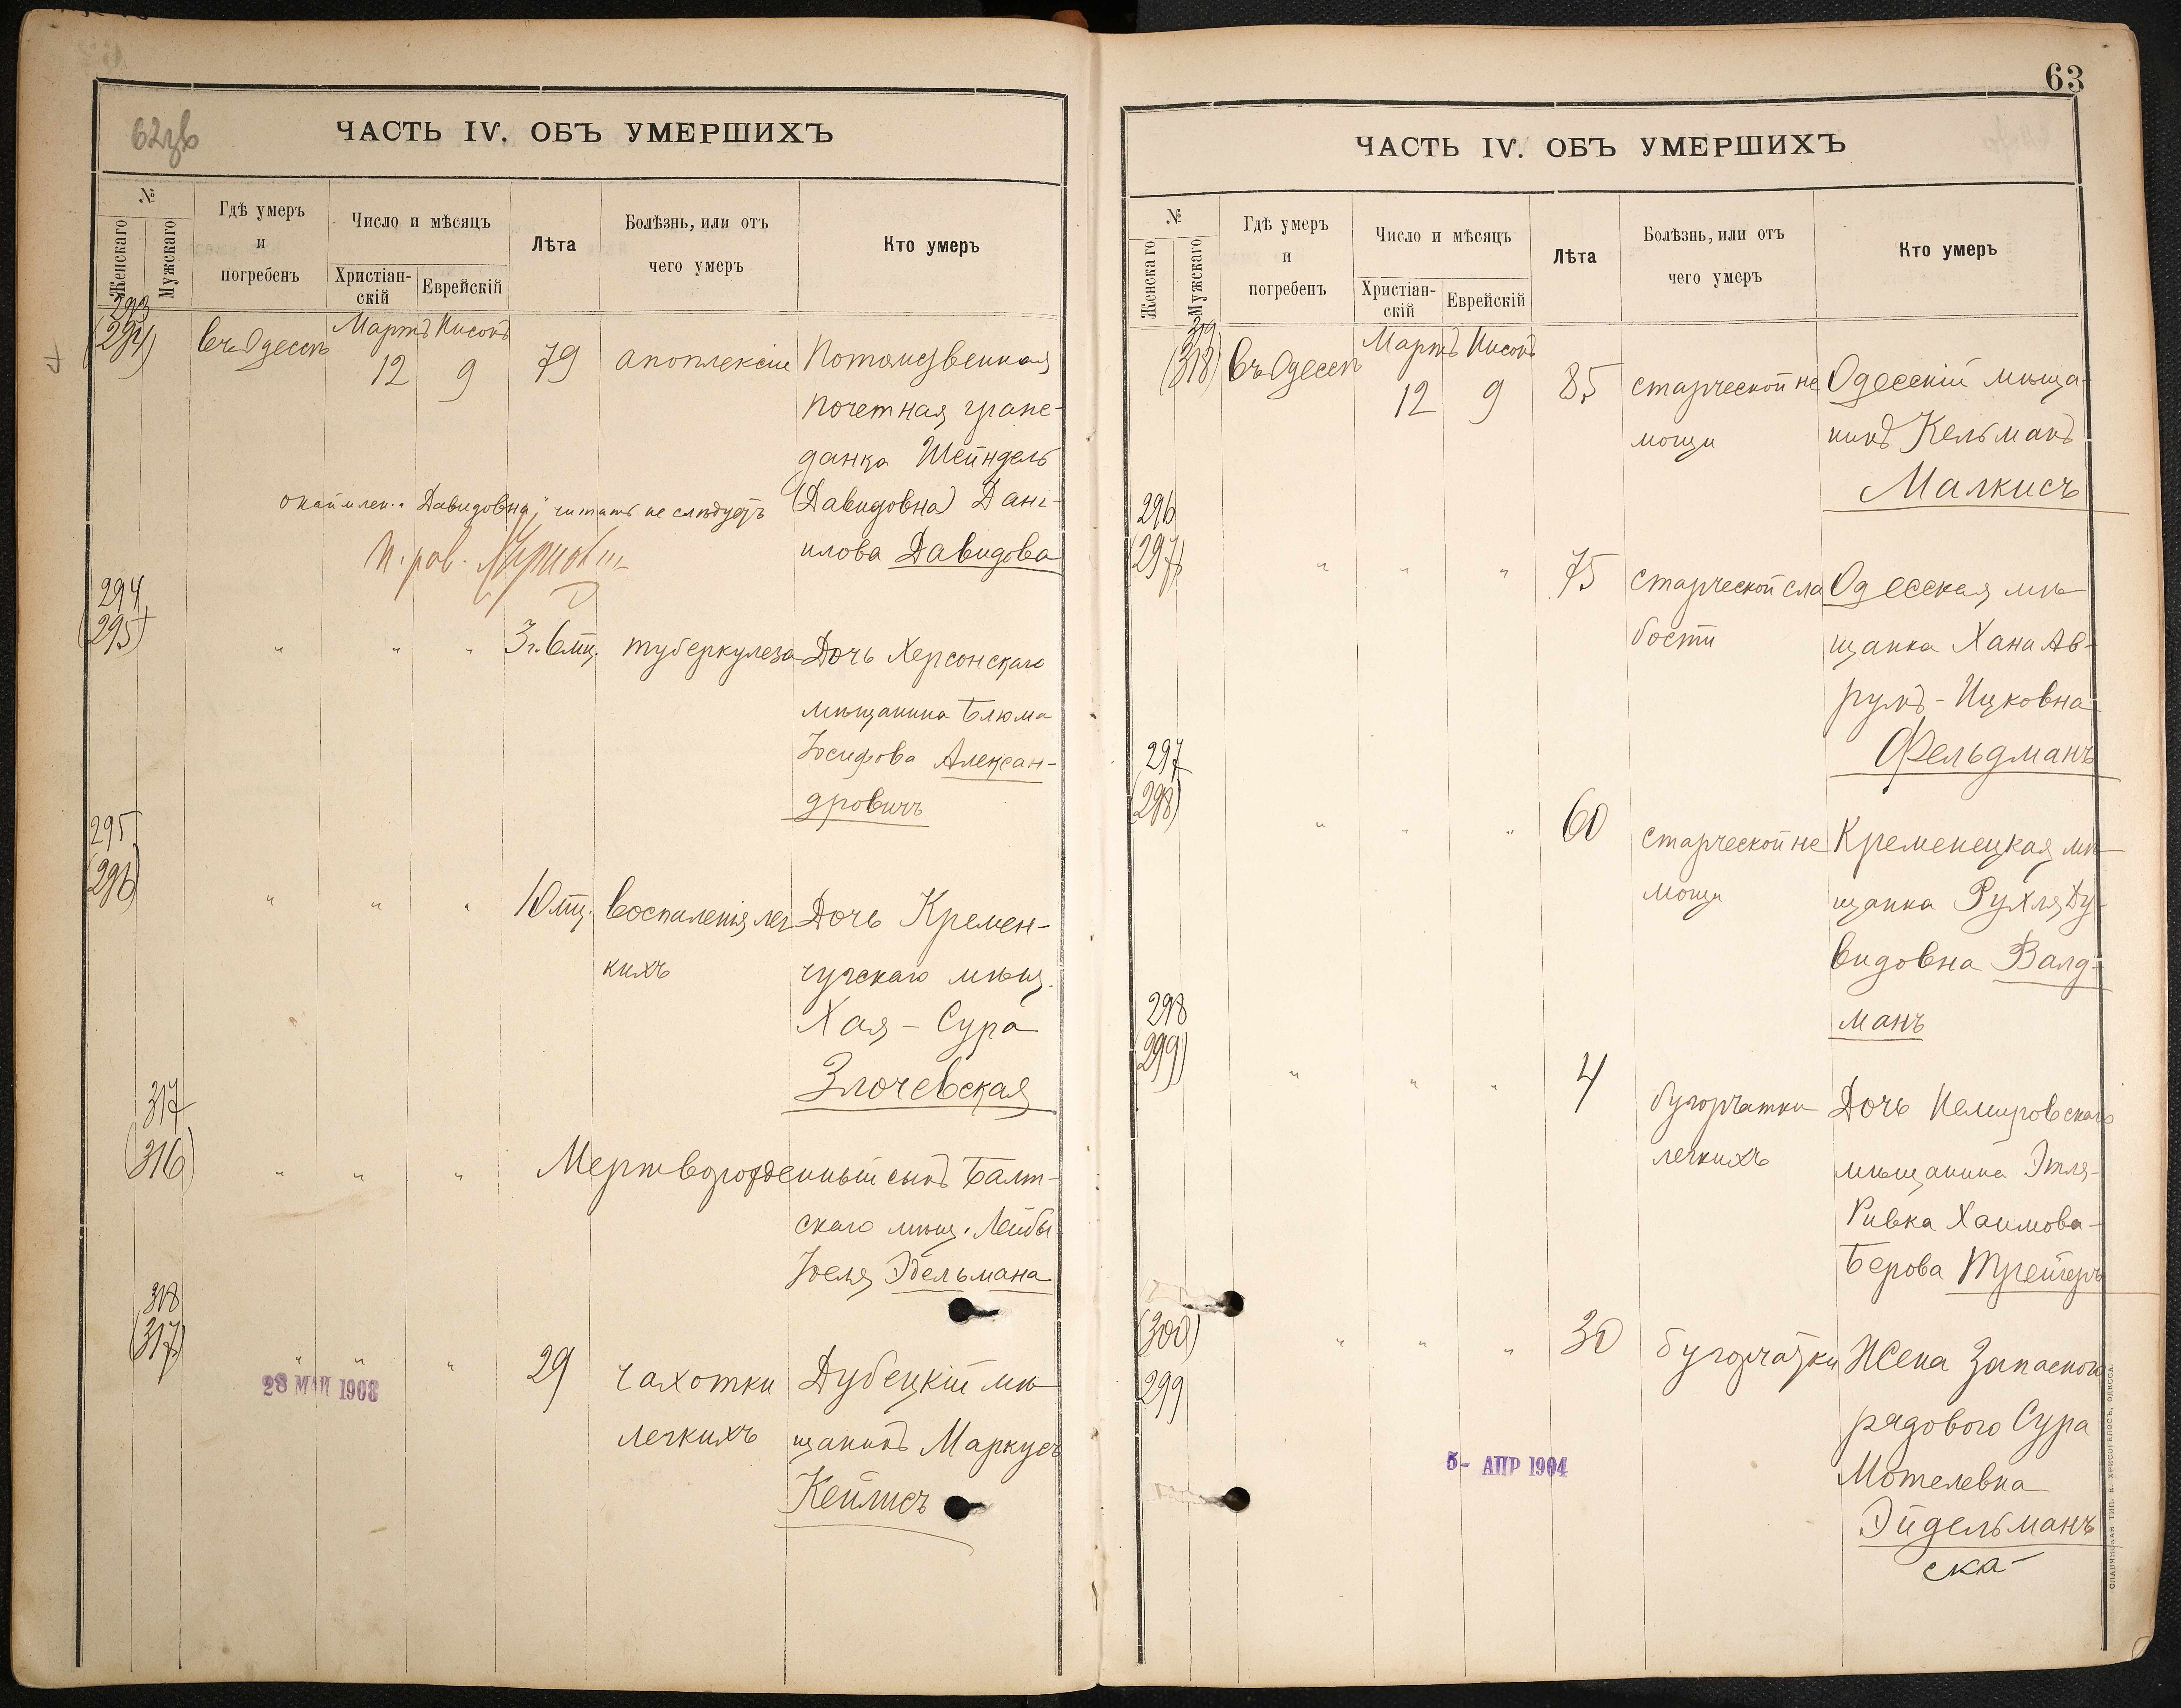 62 об
ЧАСТЬ IV. ОБЪ УМЕРШИХЪ
№
Женскаго
Мужскаго
Гдѣ умеръ
и
погребенъ
Число и мѣсяцъ
Христіан-
скій
Еврейскій
Лѣта
Болѣзнь, или отъ
чего умеръ
Кто умеръ
293
(294)
въ Одессѣ
Мартъ Нисонъ
12 9 79 апоплексіи Потомственная
почетная граж-
данка Шейндель
(Давидовна) Дани-
илова Давидова
окаймлен. "Давидовна" читать не слѣдуетъ
294
(295)
" " " 3 г. 6 мц. туберкулеза Дочь Херсонскаго
мѣщанина Блюма
Іосифова Алексан-
дровичъ
295
(296)
" " " 10 мц. воспаленія лег
кихъ
Дочь Кремен-
чугскаго мѣщ.
Хая-Сура
Злочевская
317
(316)
" " " Мертворожденный сынъ Балт-
скаго мѣщ. Лейбы
Іоеля Эдельмана
318
(317)
" " " 29 чахотки
легкихъ
Дубецкій мѣ
щанинъ Маркусъ
Кейлисъ
28 МАЙ 1903
63
ЧАСТЬ IV. ОБЪ УМЕРШИХЪ
№
Женскаго
Мужскаго
Гдѣ умеръ
и
погребенъ
Число и мѣсяцъ
Христіан-
скій
Еврейскій
Лѣта
Болѣзнь, или отъ
чего умеръ
Кто умеръ
319
(318)
въ Одессѣ
Мартъ Нисонъ
12 9 85 старческой не
мощи
Одесскій мѣща-
нинъ Кельманъ
Малкисъ
296
(297)
" " " 75 старческой сла
бости
Одесская мѣ
щанка Хана Ав-
румъ-Ицковна
Фельдманъ
297
(298)
" " " 60 старческой не
мощи
Кременецкая мѣ
щанка Рухля Ду-
видовна Валд-
манъ
298
(299)
" " " 4 бугорчатки
легкихъ
Дочь Немировскаго
мѣщанина Этля-
Ривка Хаимова-
Берова Трейгеръ
(300)
299
" " " 30 бугорчатки Жена запасного
рядового Сура
Мотелевна
Эйдельманъ
5- АПР 1904
СЛАВЯНСКАЯ ТИП. Е. ХРИСОГЕЛОСЪ, ОДЕССА.